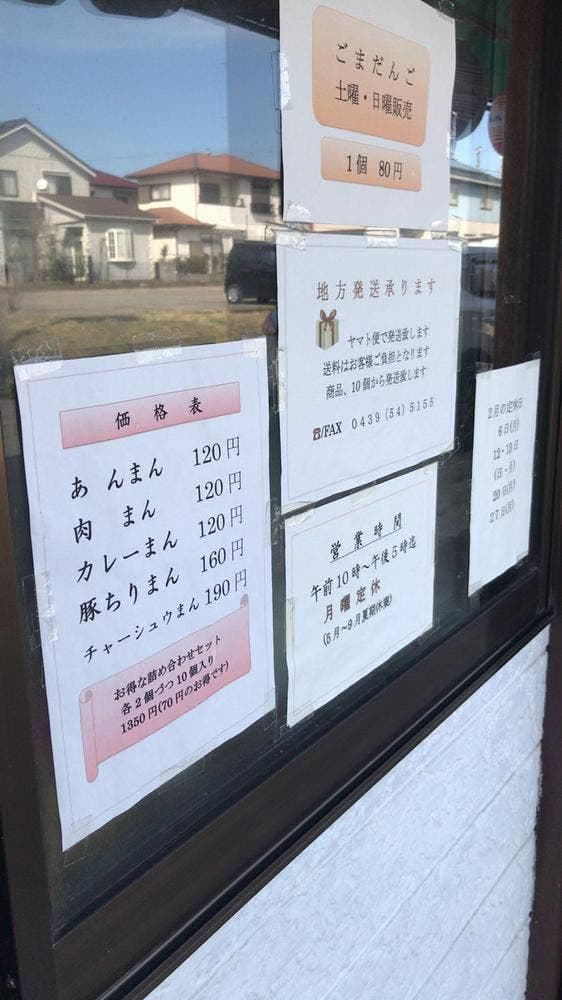 ごまだんご
土曜・日曜販売
1個 80円
地方発送承ります
ヤマト便で発送致します
送料はお客様ご負担となります
商品、10個から発送致します
☎/FAX 0439(54)5155
価格表
あんまん 120円
肉まん 120円
カレーまん 120円
豚ちりまん 160円
チャーシュウまん 190円
お得な詰め合わせセット
各2個づつ10個入り
1350円(70円のお得です)
営業時間
午前10時～午後5時迄
月曜定休
(5月～9月夏期休業)
2月の定休日
6日(月)
12・13日
(日・月)
20日(月)
27日(月)